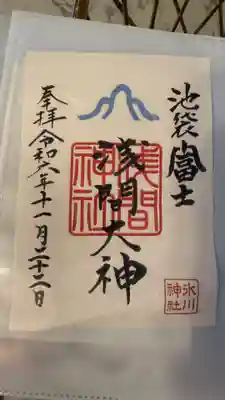 池袋富士
浅間大神
浅間神社
奉拝令和六年十一月二十二日
氷川神社